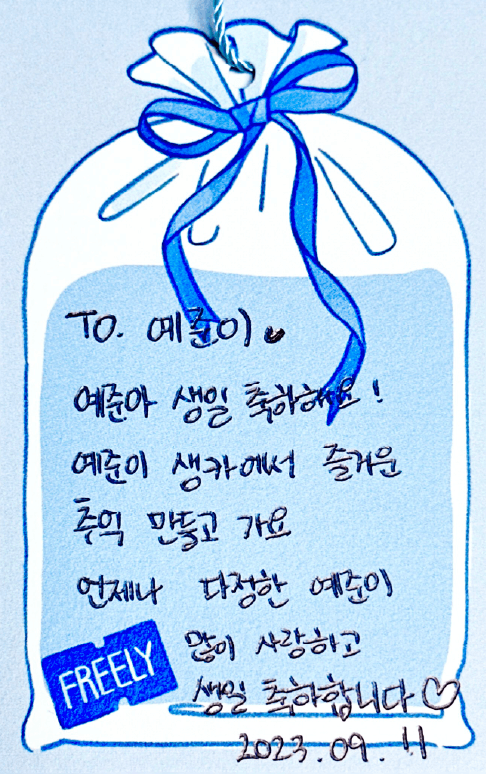 TO. 예준이♥
예준아 생일 축하해요!
예준이 생카에서 즐거운
추억 만들고 가요
언제나 다정한 예준이
많이 사랑하고
생일 축하합니다♡
FREELY
2023.09.11